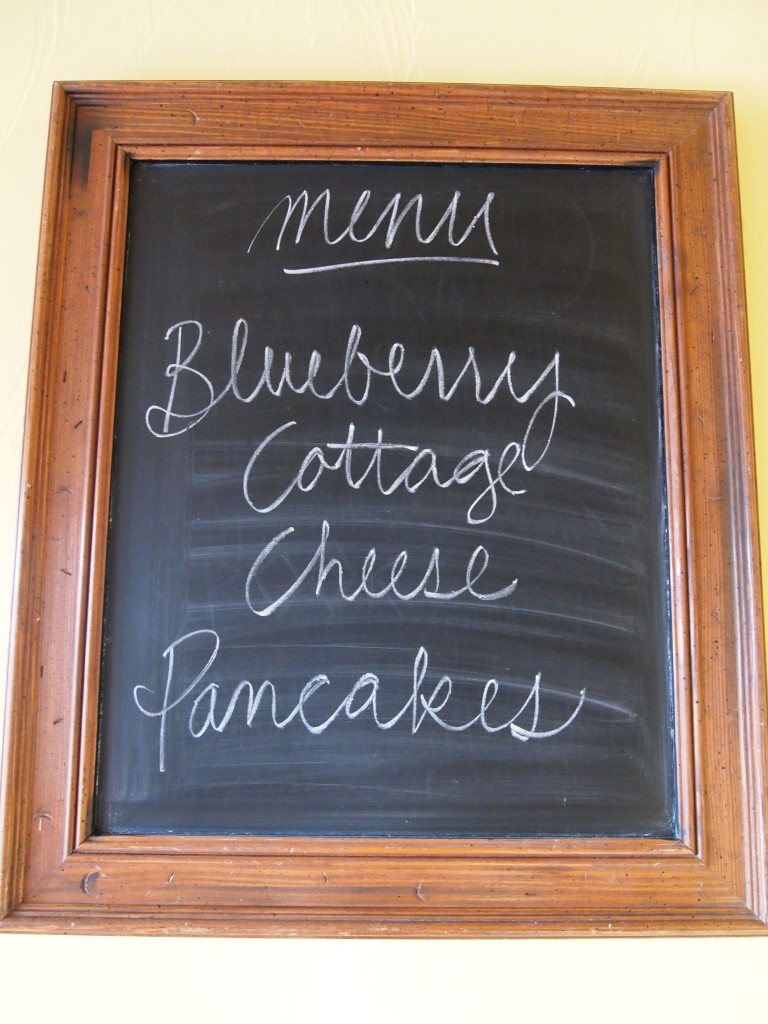 menu
Blueberry
Cottage
Cheese
Pancakes